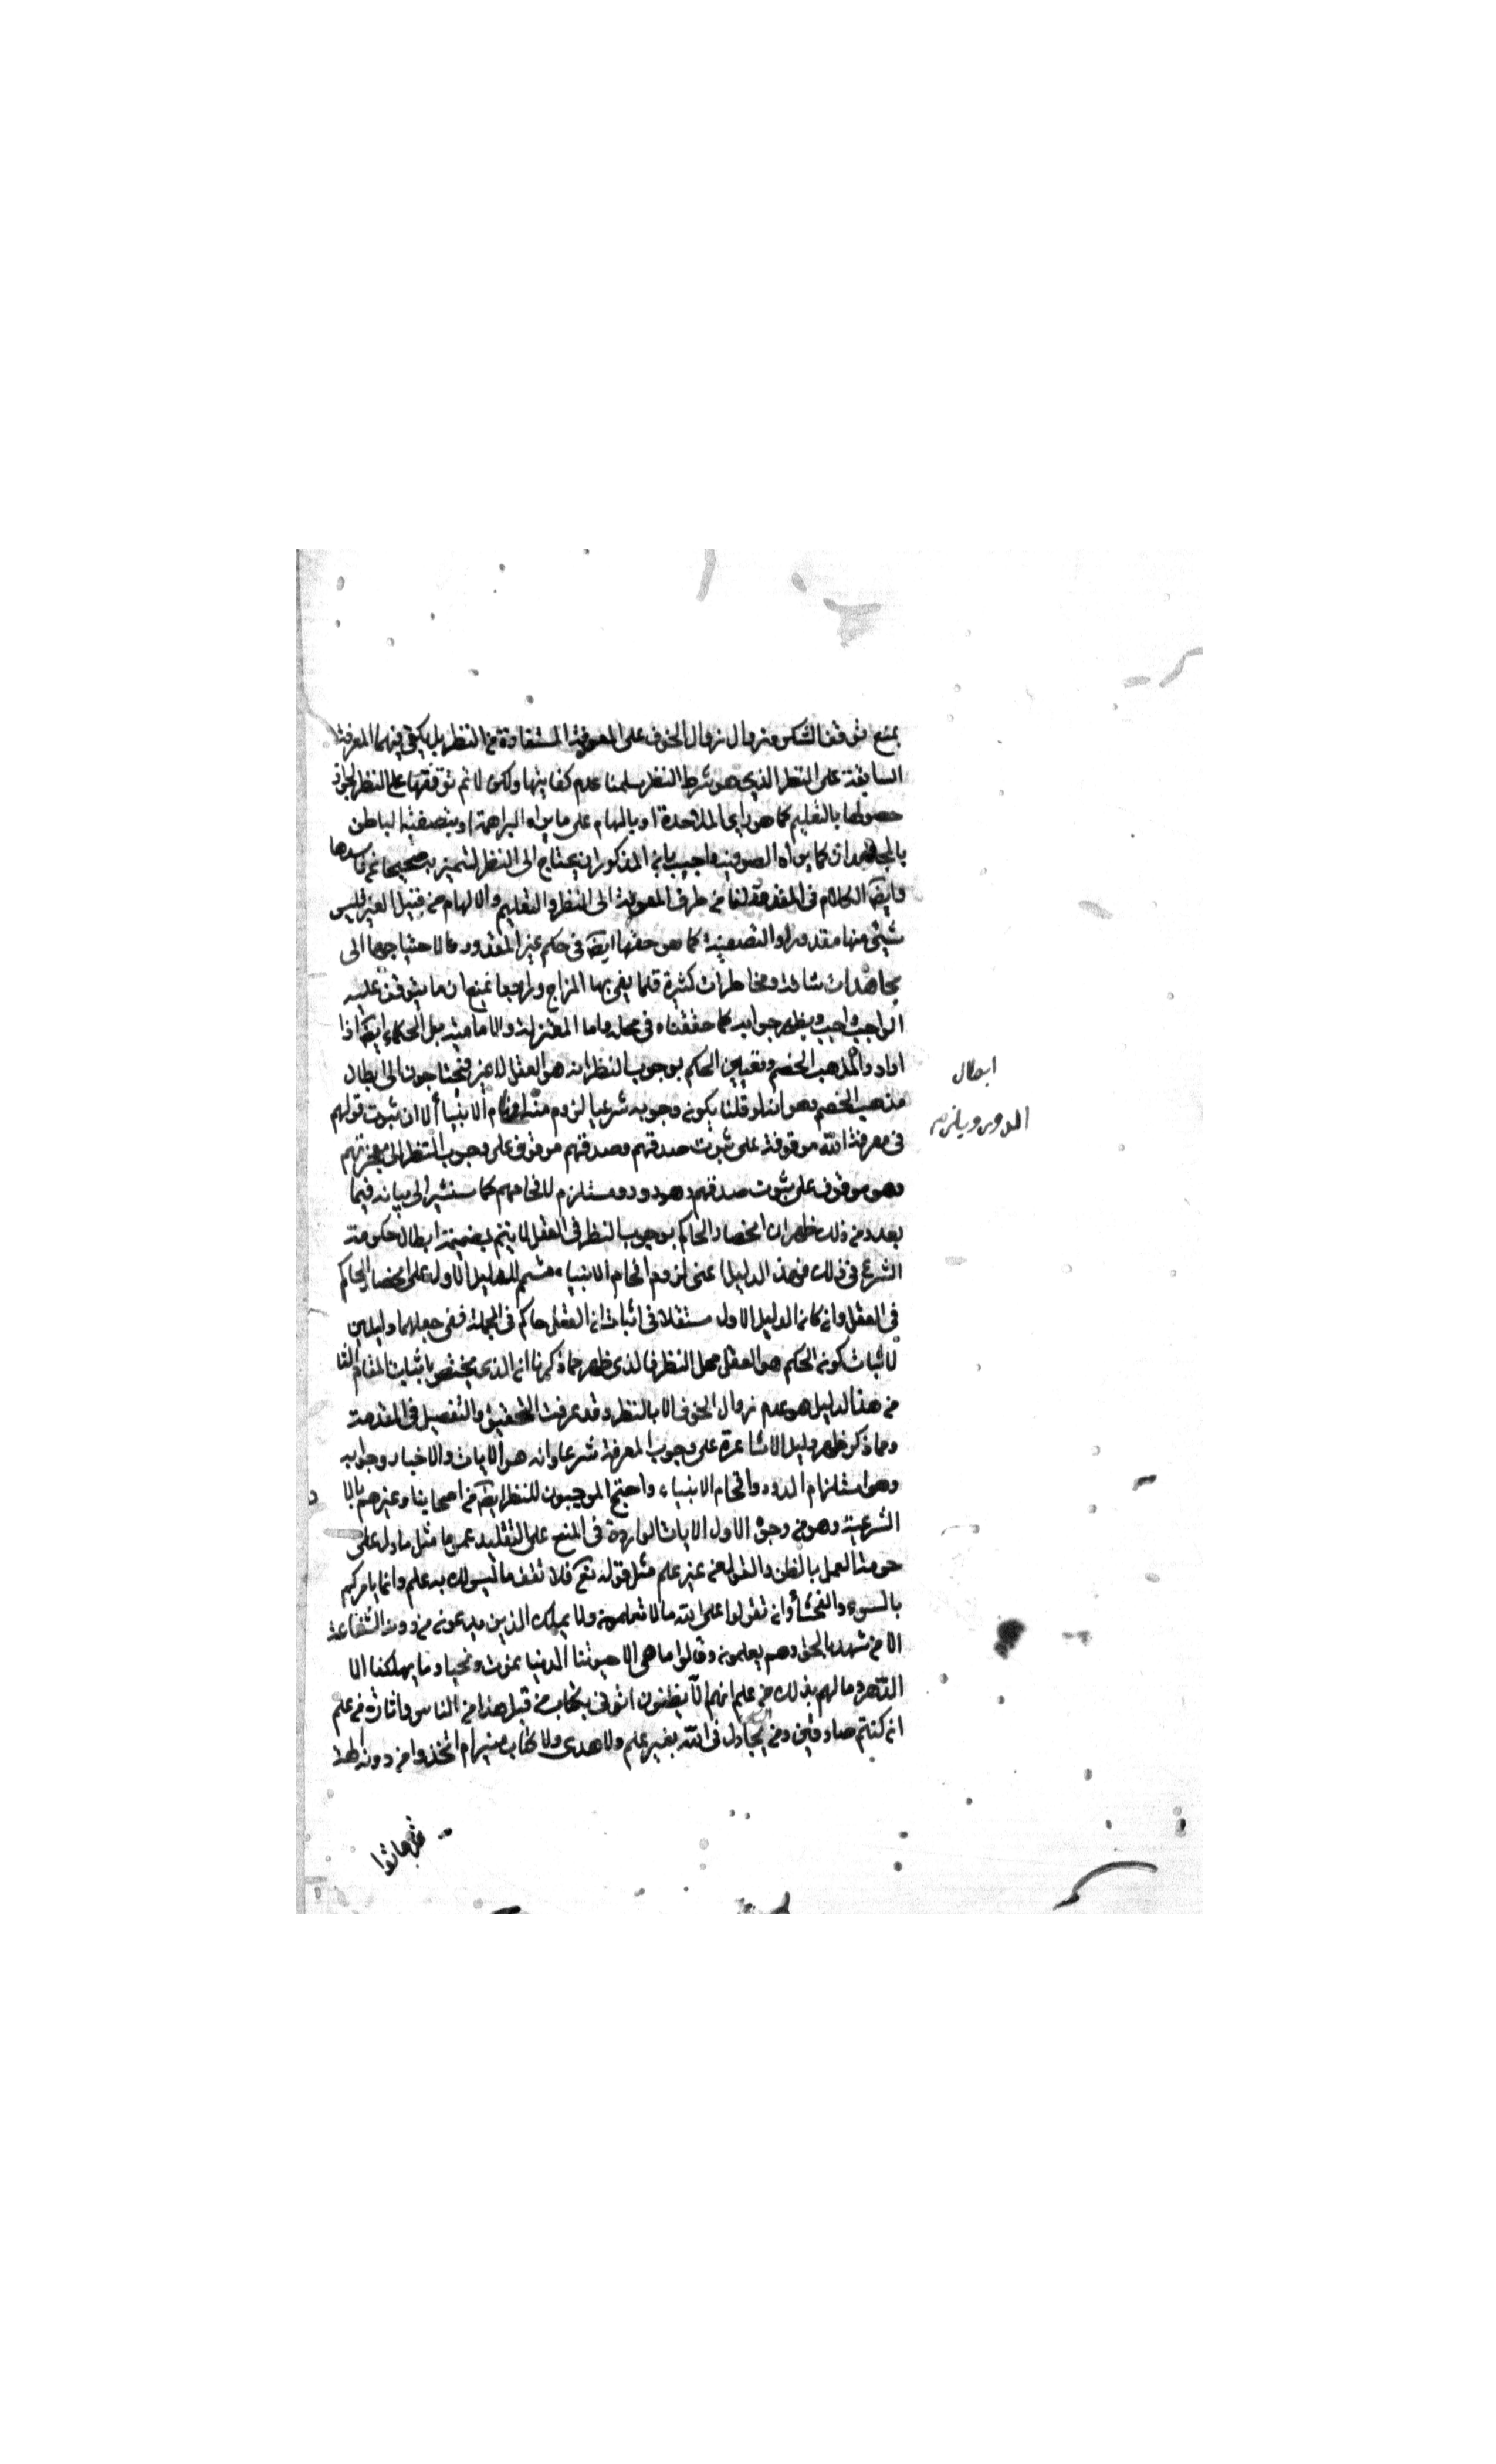 بمنع توقف الشكر وزوال الخوف على المعرفة المستفادة من النظر بل يكفى فيهما المعرفة
السابقة على النظر الذى هو شرط النظر سلمنا عدم كفايتها ولكن لا نم توقفها على النظر لجواز
حصولها بالتعليم كما هو راى الملاحدة او بالهام على ما يراه البراهمة او بتصفية الباطن
بالمجاهدات كما يراه الصوفية واجيب بان المذكورات يحتاج الى النظر لتميز به صحيحها عن فاسدها
وايضا الكلام فى المقدور لنا من طرف المعرفة الى النظر والتعليم والالهام من قبيل الغير فليس
شيئ منها مقدورا والتصفية كما هو حقها ايضا فى حكم غير المقدور لاحتياجها الى
مجاهدات شاقة ومخاطرات كثيرة قلما يفى بها المزاج ورابعا بمنع ان ما يتوقف عليه
الواجب واجب ويظهر جوابه كما حققناه فى محله واما المعتزلة والامامية بل الحكماء ايضا اذا
ارادوا مذهب الخصم وتعيين الحاكم بوجوب النظر انه هو العقل لا غير فيحتاجون الى ابطال
ابطال
مذهب الخصم وهو انه لو قلنا بكونه وجوبه شرعيا لزوم منه افحام الانبياء الا ان ثبوت قولهم
الدور ويلزم
فى معرفة الله موقوفة على ثبوت صدقهم وصدقهم موقوف على وجوب النظر الى معجزتهم
وهو موقوف على ثبوت صدقهم وهو دور مستلزم لافحامهم كما سنشير الى بيانه فيما
بعد ومن ذلك ظهر ان انحصار الحاكم بوجوب النظر فى العقل لا يتم بضميمة ابطال حكومة
الشرع فى ذلك فهذا الدليل اعنى لزوم افحام الانبياء متمم للدليل الاول على انحصار الحاكم
فى العقل وان كان الدليل الاول مستقلا فى اثبات ان العقل حاكم فى الجملة ففى جعلهما دليلين
لاثبات كون الحكم هو العقل محل النظر فالذى ظهر مما ذكرنا ان الذى يختص باثبات المقام الثا
من هذا الدليل هو عدم زوال الخوف الا بالنظر وقد عرفت التحقيق والتفصيل فى المقدمة
ومما ذكر ظهر دليل الاشاعرة على وجوب المعرفة شرعا وانه هو الايات والاخبار وجوابه
وهو استلزام الدور وافحام الانبياء واحتج الموجبون للنظر ايضا من اصحابنا وغيرهم بالا
الشرعية وهو من وجوه الاول الايات الواردة فى المنع على التقليد عموما مثل ما دل على
حرمة العمل بالظن والقول من غير علم مثل قوله تع فلا تقف ما ليس لك به علم وانما يامركم
بالسوء والفحشاء وان تقولوا على الله ما لا تعلمون ولا يملك الذين يدعون من دونه الشفاعة
الا من شهد بالحق وهم يعلمون وقالوا ما هى الا حيوتنا الدنيا نموت ونحيا وما يهلكنا الا
الدهر وما لهم بذلك من علم ان هم الا يظنون ائتونى بكتاب من قبل هذا من الناس واثارة من علم
ان كنتم صادقين ومن يجادل فى الله بغير علم ولا هدى ولا كتاب منير ام اتخذوا من دونه الهة
قل هاتوا